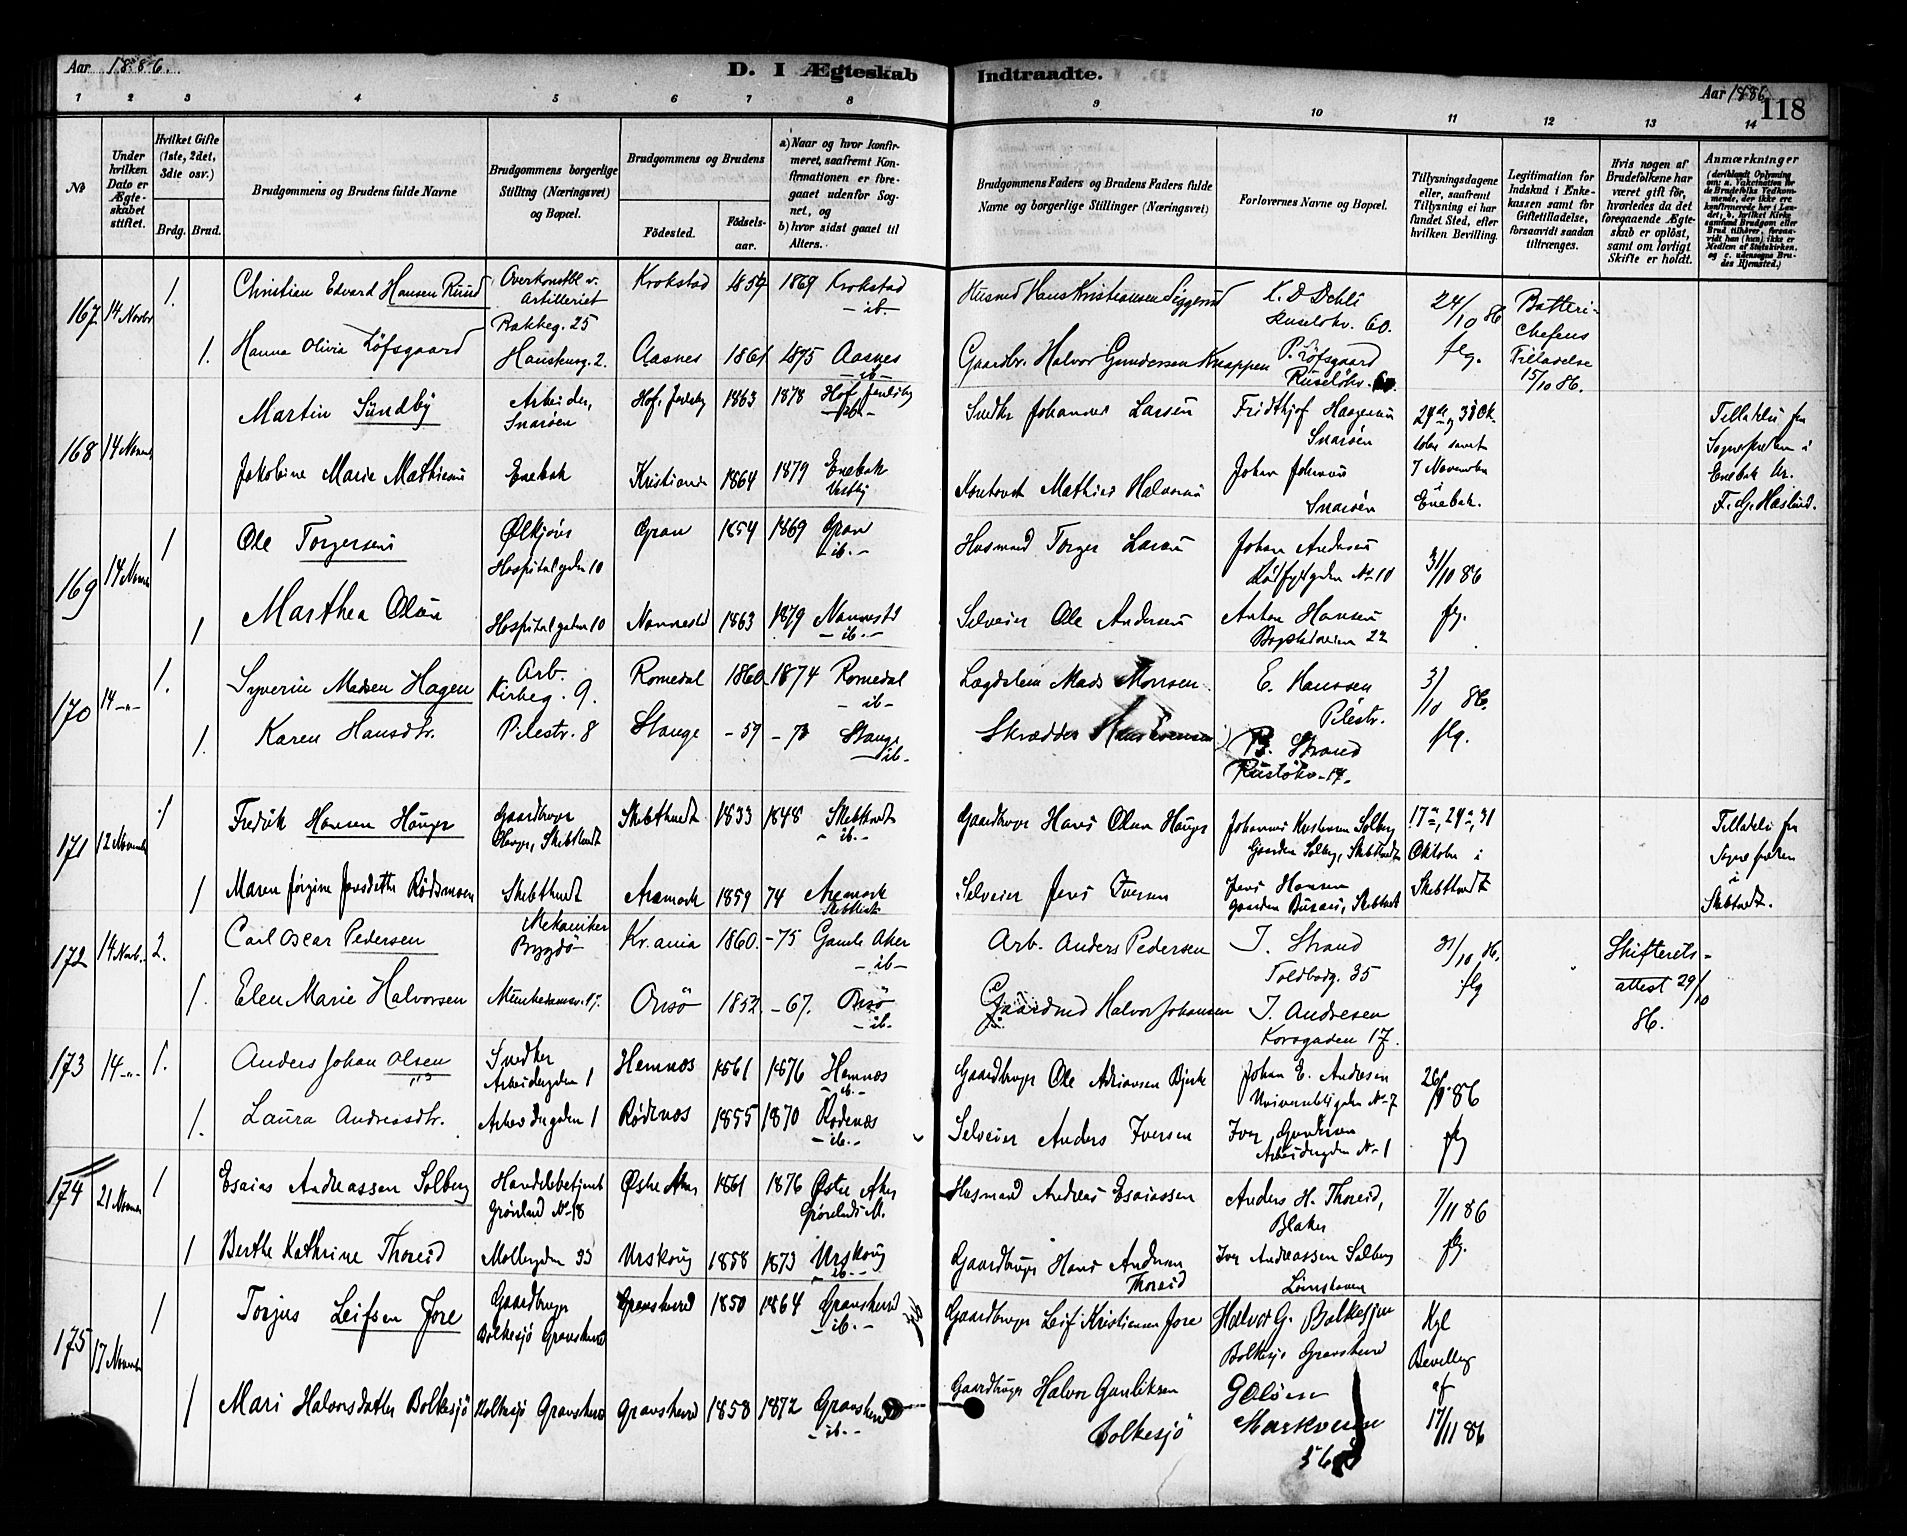 Aar 1886.
D. I Ægteskab Indtraadte.
Aar 1886
118
1 2 3 4 5 6 7 8 9 10 11 12 13 14
No
Under hvilken Dato er Ægteskabet stiftet.
Hvilket Gifte (1ste, 2det, 3die osv.)
Brdg. Brud.
Brudgommens og Brudens fulde Navne
Brudgommens borgerlige Stilling (Næringsvei) og Bopæl.
Brudgommens og Brudens
Födested.
Födsels-aar.
a) Naar og hvor konfirmeret, saafremt Konfirmationen er foregaaet udenfor Sognet, og
b) hvor sidst gaaet til Alters.
Brudgommens Faders og Brudens Faders fulde Navne og borgerlige Stillinger (Næringsvei)
Forlovernes Navne og Bopæl.
Tillysningsdagene eller, saafremt Tillysning ei har fundet Sted, efter hvilken Bevilling.
Legitimation for Indskud i Enkekassen samt for Giftetilladelse, forsaavidt saadan tiltrænges.
Hvis nogen af Brudefolkene har været gift før, hvorledes da det foregaaende Ægteskab er oplöst, samt om lovligt Skifte er holdt.
Anmærkninger
167 14 Novbr 1. Christian Edvard Hansen Ruud Overkonstbl v. Artilleriet Bakkeg. 25 Krokstad 1859 1869 Krokstad -ib- Husmd Hans Kristiansen Siggerud K. D. Dehli Ruselökv. 60. 24/10 86 flg. Batteri-Chefens Tilladelse 15/10 86.
1. Hanna Olivia Löfsgaard Hausmg. 2. Aasnes 1861 1875 Aasnes -ib- Gaardbr. Halvor Gundersen Knappen P. Löfsgaard Ruselökv. 60.
168 14 Novemb Martin Sundby Arbeider, Snaröen Hof, 1863 1878 Hof Snedkr Johannes Larsen Fridthjof Snaröen 24de og 31 Ok. 7 November i Enebak. Tilladelse fra Sognepresten i Enebak Hr. F. G. Haslund.
Jakobine Marie Mathisen Enebak Kristiania 1864 1879 Enebak Vestby Mathias Halvorsen Johan Johansen Snaröen
169 14 Novem 1 Ole Torgersen Ølkjører Hospitalgaden 10 Gran 1854 1869 Gran -ib.- Husmand Torger Larsen Johan Andersen No 10 31/10 86 flg.
1 Marthea Olsen Hospitalgaden 10 Nannestd 1863 1879 Nannestd -ib.- Selveier Ole Andersen Anton Hansen 22
170 14 -"- 1. Syverin Madsen Hagen Arb. Kirkeg. 9. Romedal 1860 1874 Romedal -ib- Lægdslem Mads Monsen E. Hanssen Pilestr. 31/10 86. flg.
1. Karen Hansdtr. Pilestr. 8 Stange -59 -73 Stange -ib- Skrædder B. Strand Ruselökv. 17.
171 12 Novembr 1 Fredrik Hansen Hauger Gaardbruger Hauger, Skibthvedt Skibthvedt 1833 1848 Skibthvedt -ib.- Gaardbruger Hans Olsen Hauger Johannes Kristiansen Solberg Gaarden Solberg, Skibthvedt 17de, 24de, 31 Oktober i Skibthvedt Tilladelse fra Sognepresten i Skibthvedt.
1 Maren Jørgine Jensdatter Rödsmoen Skibthvedt Aremark 1859 74 Aremark Skibthvedt Selveier Jens Iversen Jens Hansen Gaarden Skibthvedt
172 14 Novb. 2. Carl Oscar Pedersen Mekaniker Bygdö Kr.ania 1860. -75 Gamle Aker -ib- Arb. Anders Pedersen I. Strand Toldbodg. 35 31/10 86. flg Skifterets-attest 29/10 86.
1. Elen Marie Halvorsen Munkedamsv. 17. Onsö 1852. -67. Onsö -ib.- Gaardmd Halvor Johansen I. Andresen Korsgaden 17.
173 14 -"- 1. Anders Johan Olsen Snedker Arbeidergden 1 Hemnæs 1861 1876 Hemnæs -ib.- Gaardbruger Ole Adriansen Bjerke Johan E. Andresen Universitetsgaden No 7 26/9 86 flg
1. Laura Andreasdtr. Arbeidergden 1 Rödenæs 1855 1870 Rödenæs -ib.- Selveier Anders Iversen Iver Gundersen Arbeidergden No 1
174 21 Novem 1 Esaias Andreassen Solberg Handelsbetjent Grønland No 18 Østre Aker 1861 1876 Østre Aker Grønlands M. Husmand Andreas Esaiassen Anders H. Thoreid, Blaker 7/11 86 flg.
1 Berthe Kathrine Thoreid Møllergden 33 Urskoug 1858 1873 Urskoug -ib- Gaardbruger Hans Andersen Thoreid Iver Andreassen Solberg
175 17 Novembr 1 Torjus Leifsen Jore Gaardbruger Bolkesjö Gransherred Gransherred 1850 1864 Gransherred -ib.- Gaardbruger Leif Kristiansen Jore Halvor G. Bolkesjøe Bolkesjø Gransherred Kgl Bevilling af 17/11 86
1 Mari Halvorsdatter Bolkesjö Bolkesjö Gransherred Gransherred 1858 1872 Gransherred -ib.- Gaardbruger Halvor Gunliksen Bolkesjö G Olsen Markveien